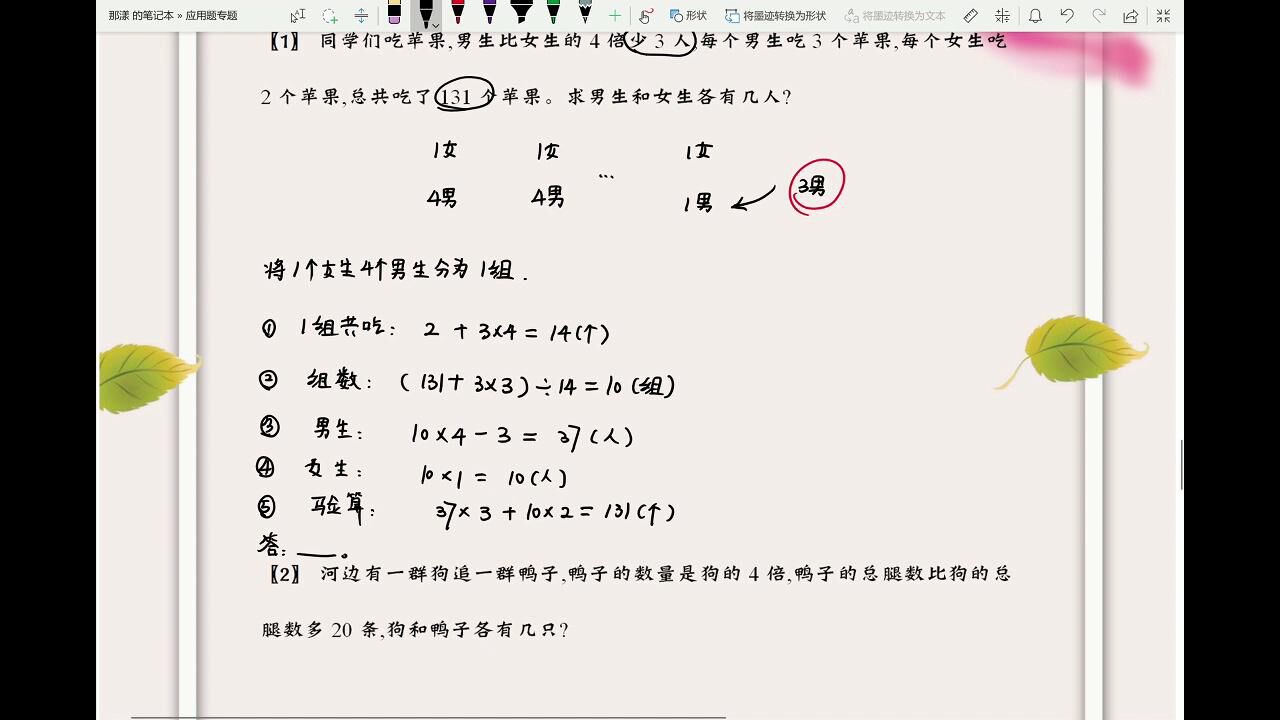 那漾 的笔记本 » 应用题专题
形状 将墨迹转换为形状 将墨迹转换为文本
【1】 同学们吃苹果,男生比女生的 4 倍少 3 人,每个男生吃 3 个苹果,每个女生吃
2 个苹果,总共吃了 131 个苹果。求男生和女生各有几人?
1女 1女 1女
...
4男 4男 1男 3男
将1个女生4个男生分为1组.
① 1组共吃: 2 + 3×4 = 14(个)
② 组数: (131+ 3×3)÷14 = 10 (组)
③ 男生: 10×4 - 3 = 37(人)
④ 女生: 10×1 = 10(人)
⑤ 验算: 37×3 + 10×2 = 131(个)
答: ___。
【2】 河边有一群狗追一群鸭子,鸭子的数量是狗的 4 倍,鸭子的总腿数比狗的总
腿数多 20 条,狗和鸭子各有几只?